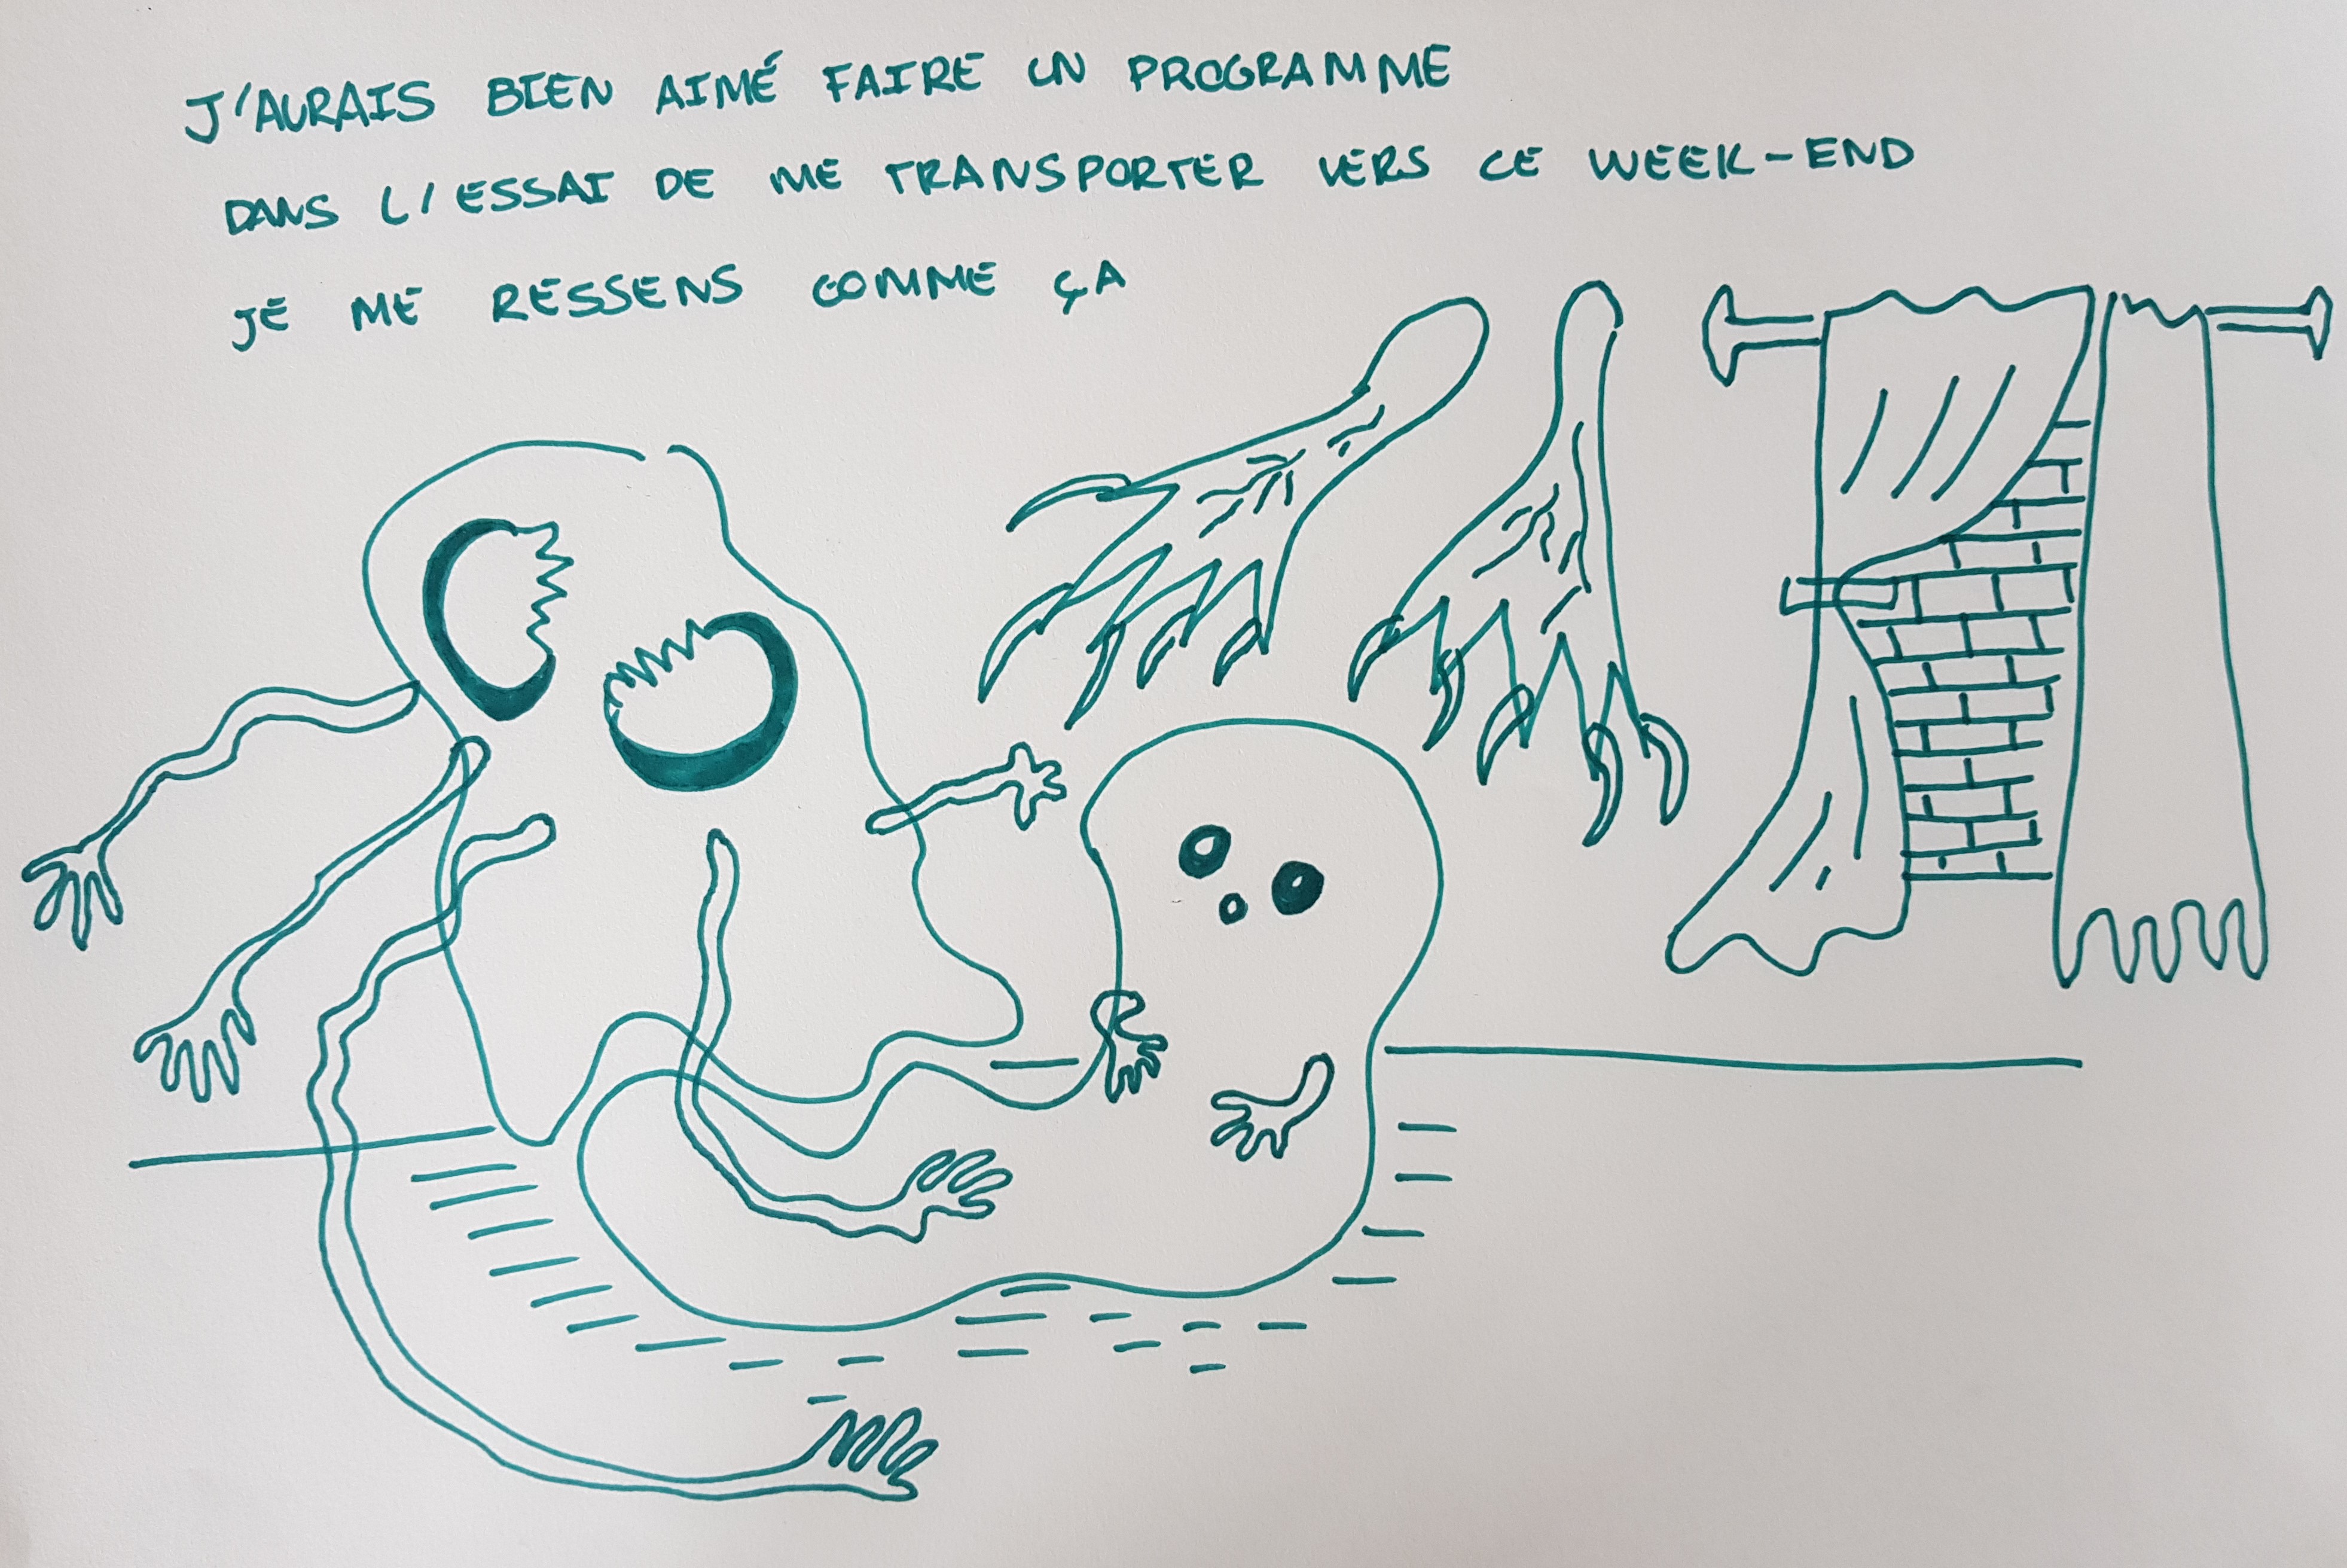 J'AURAIS BIEN AIMÉ FAIRE UN PROGRAMME
DANS L'ESSAI DE ME TRANSPORTER VERS CE WEEK-END
JE ME RESSENS COMME ÇA